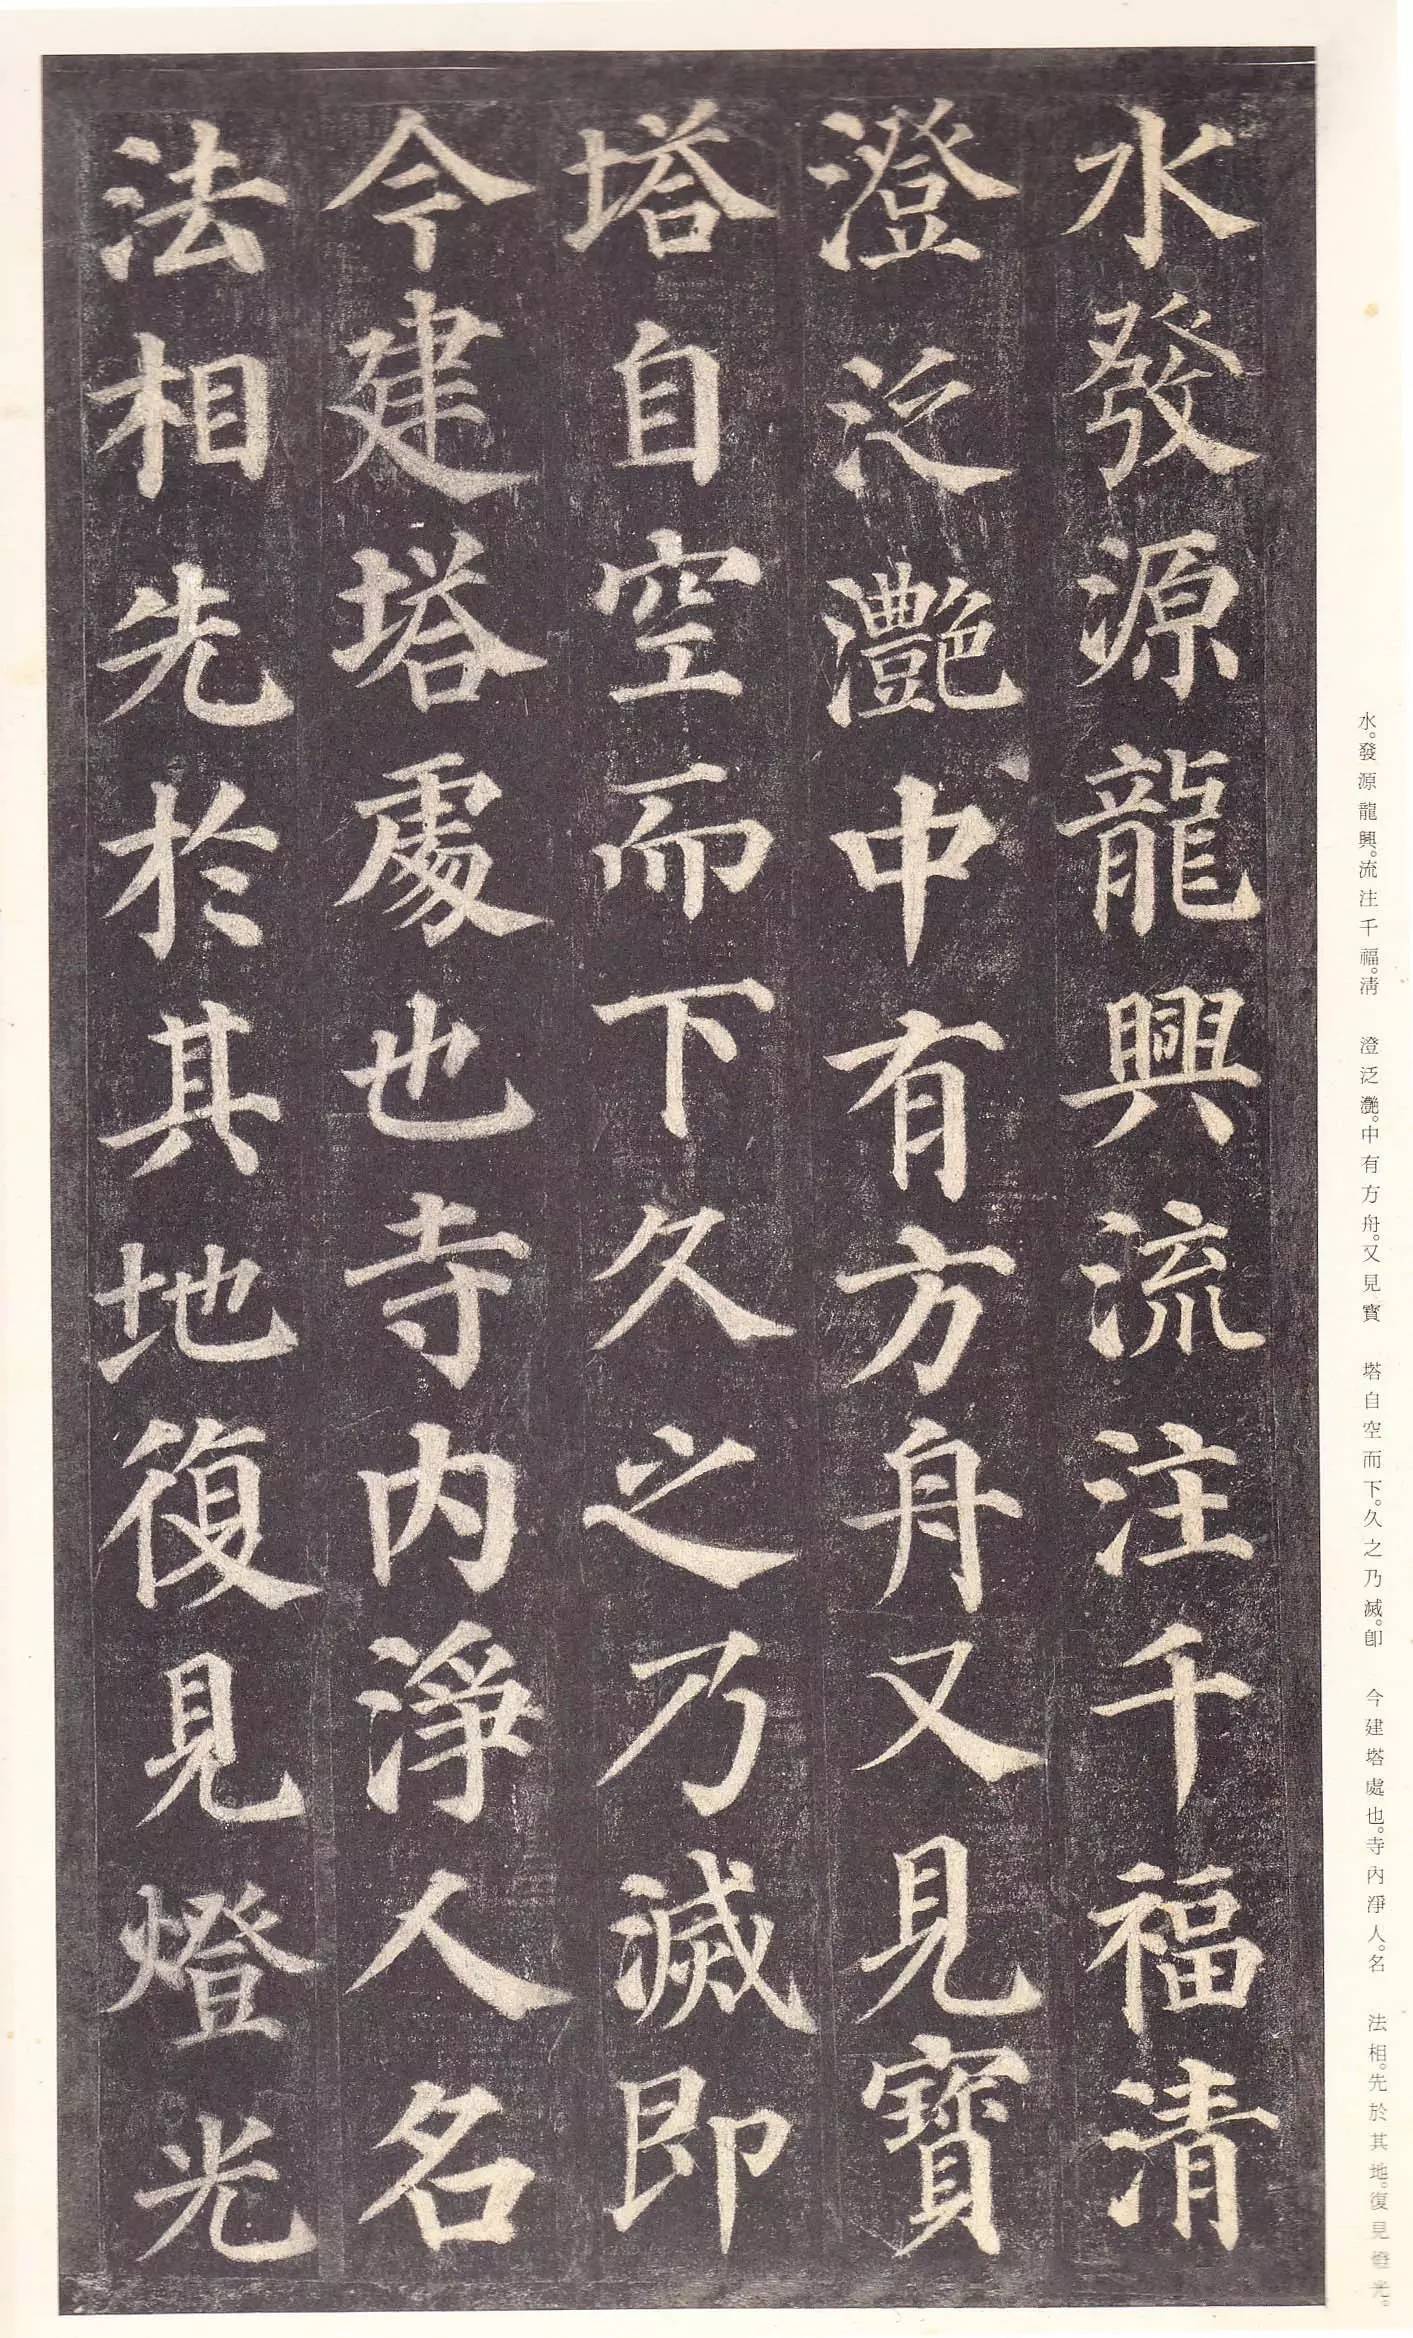 水發源龍興流注千福清
澄泛灔中有方舟又見寶
塔自空而下久之乃滅即
今建塔處也寺内淨人名
法相先於其地復見燈光
水。發源龍興。流注千福。清　澄泛灔。中有方舟。又見寶　塔自空而下。久之乃滅。卽　今建塔處也。寺內淨人。名　法相。先於其地。復見燈光。